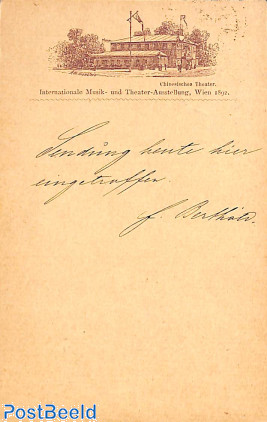 Chinesisches Theater.
Internationale Musik- und Theater-Ausstellung, Wien 1892.
Sendung heute hier
eingetroffen
PostBeeld